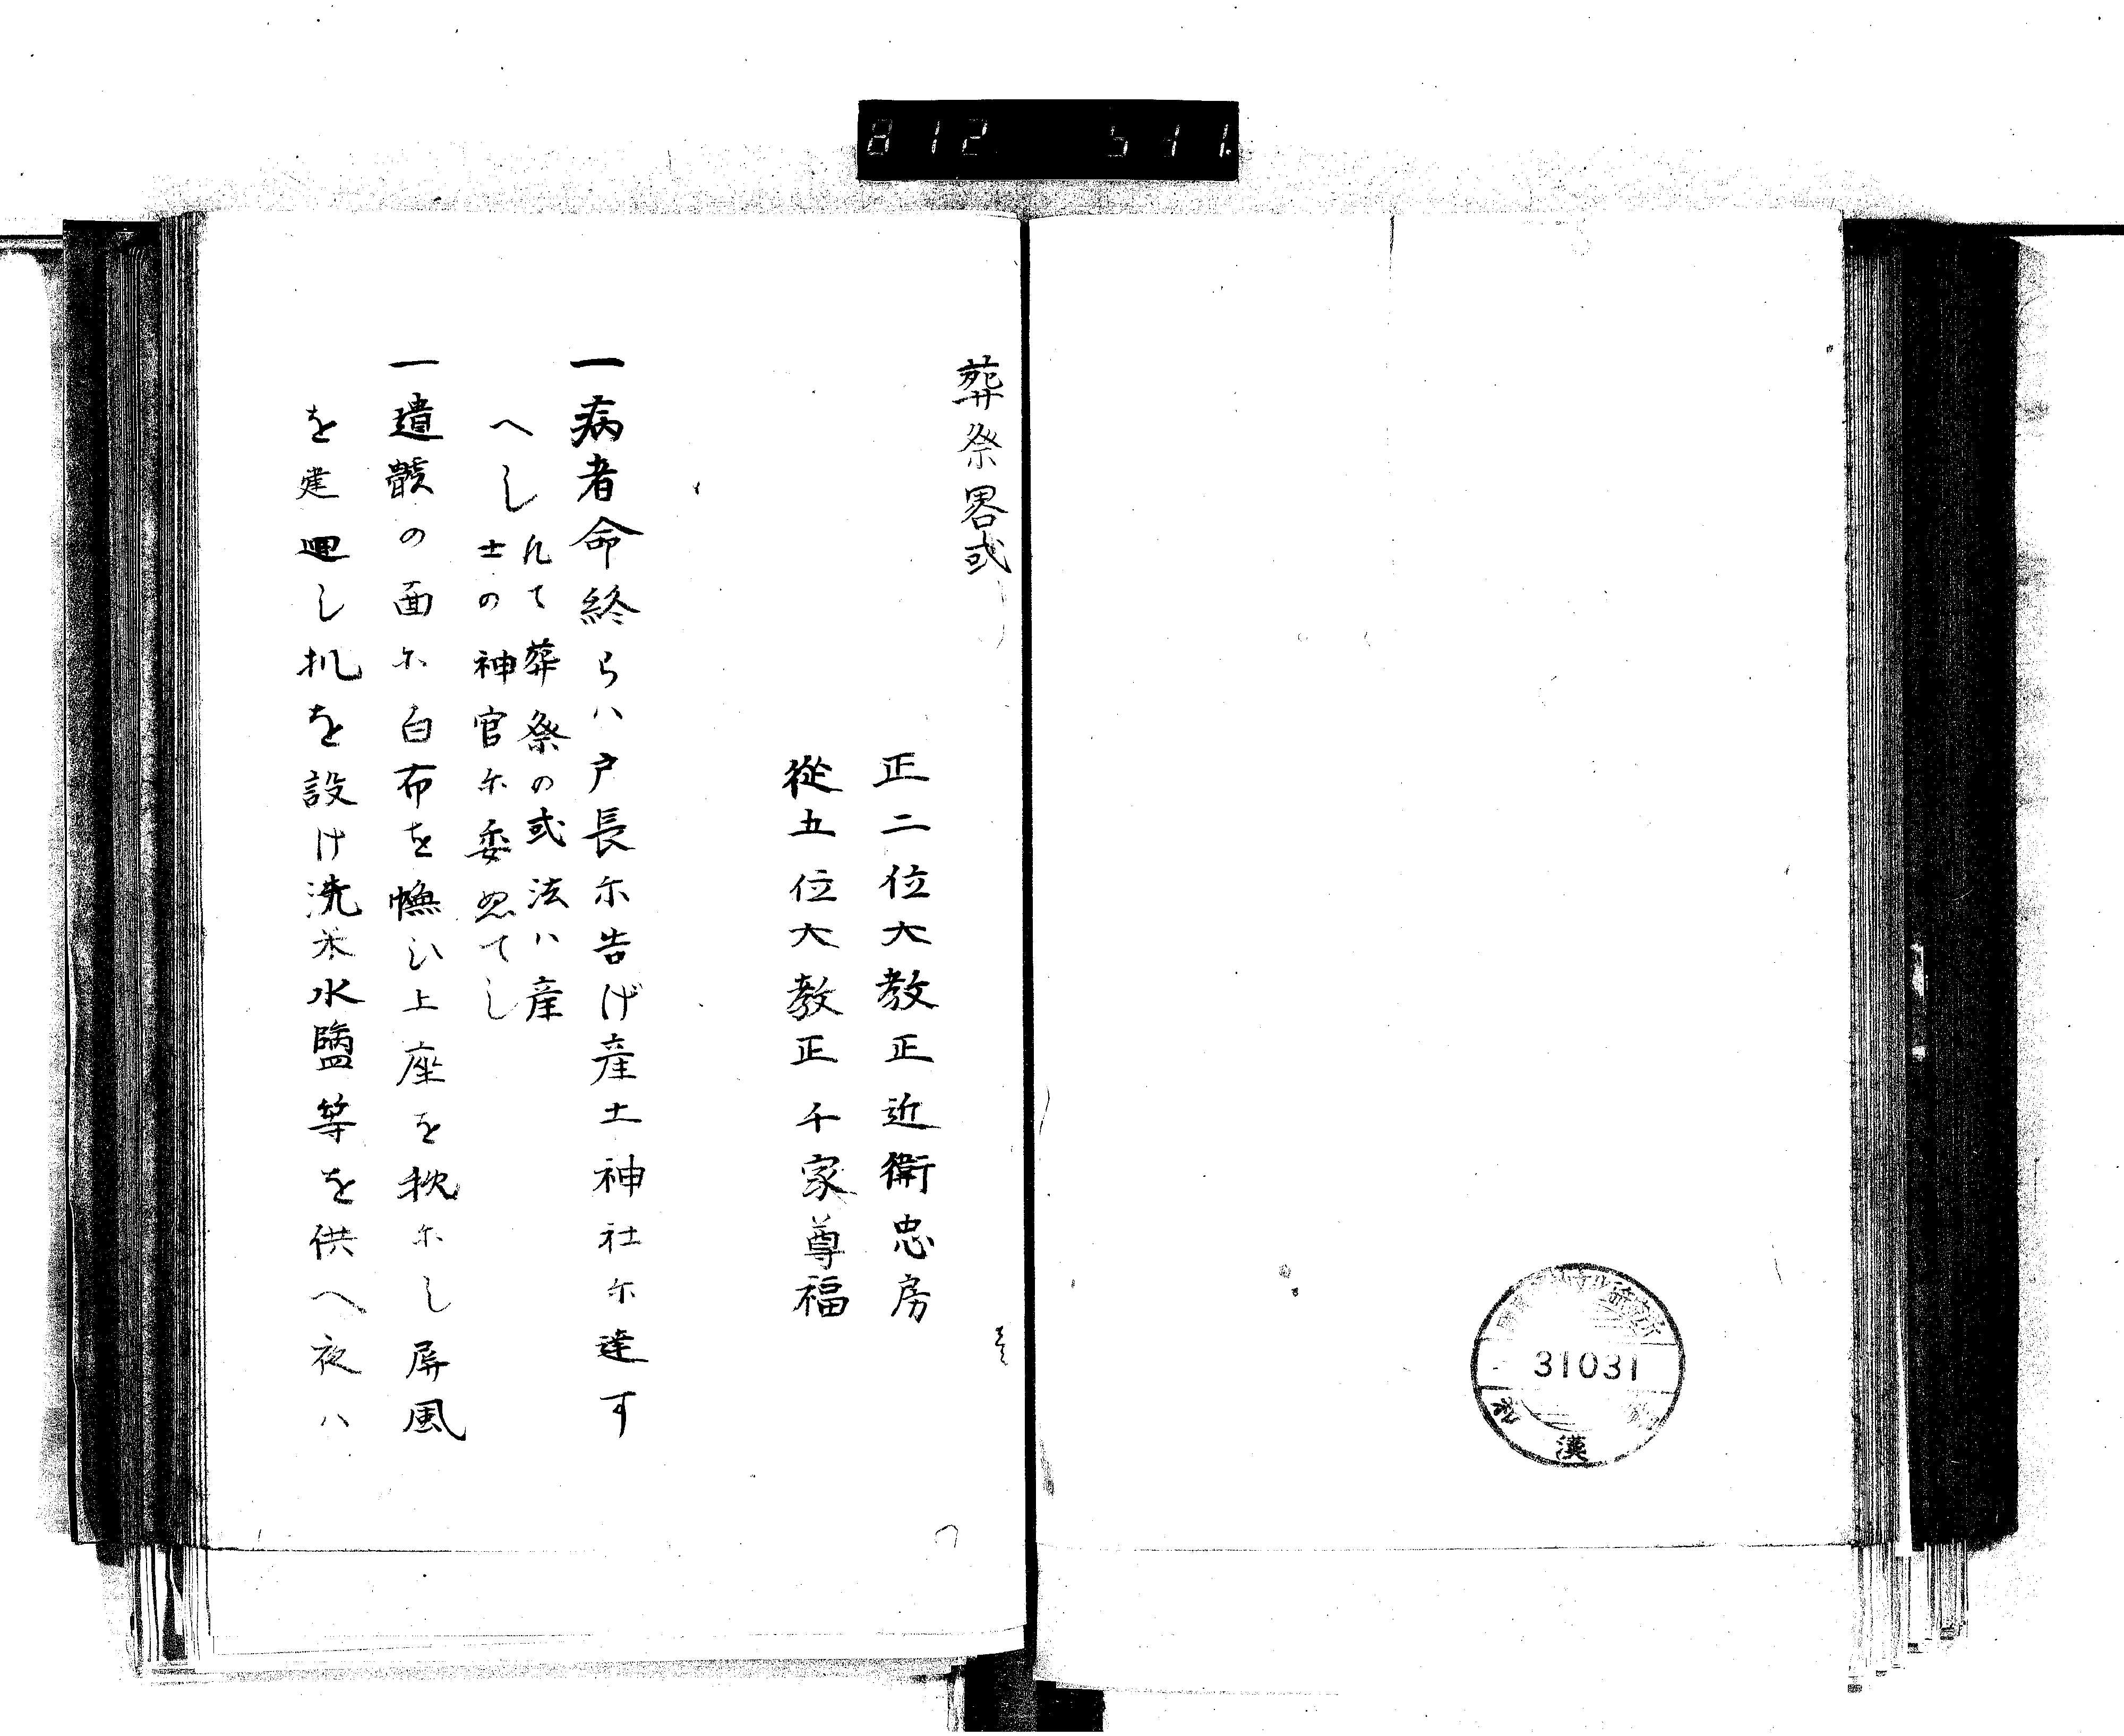 812 511
葬祭畧式
正二位大教正近衛忠房
從五位大教正千家尊福
一病者命終らハ戸長尓告げ産土神社尓達す
へし
凡て葬祭の式法ハ産
土の神官尓委ぬてし
一遺骸の面尓白布を幠ひ上座を枕尓し屏風
を建廻し机を設け洗米水鹽等を供へ夜ハ
31031
漢